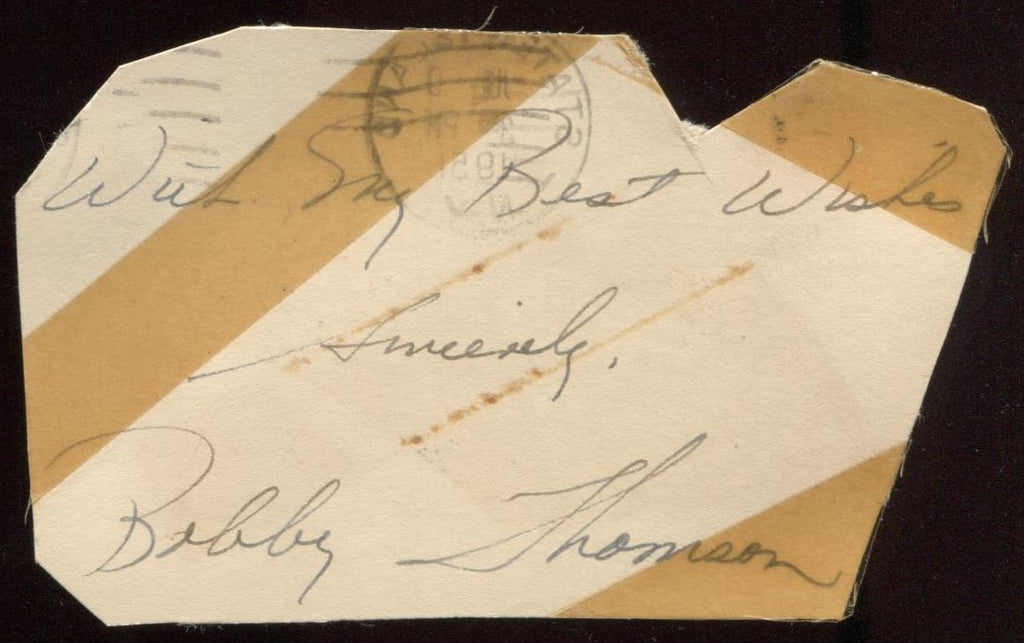 With My Best Wishes
Sincerely,
Bobby Thomson